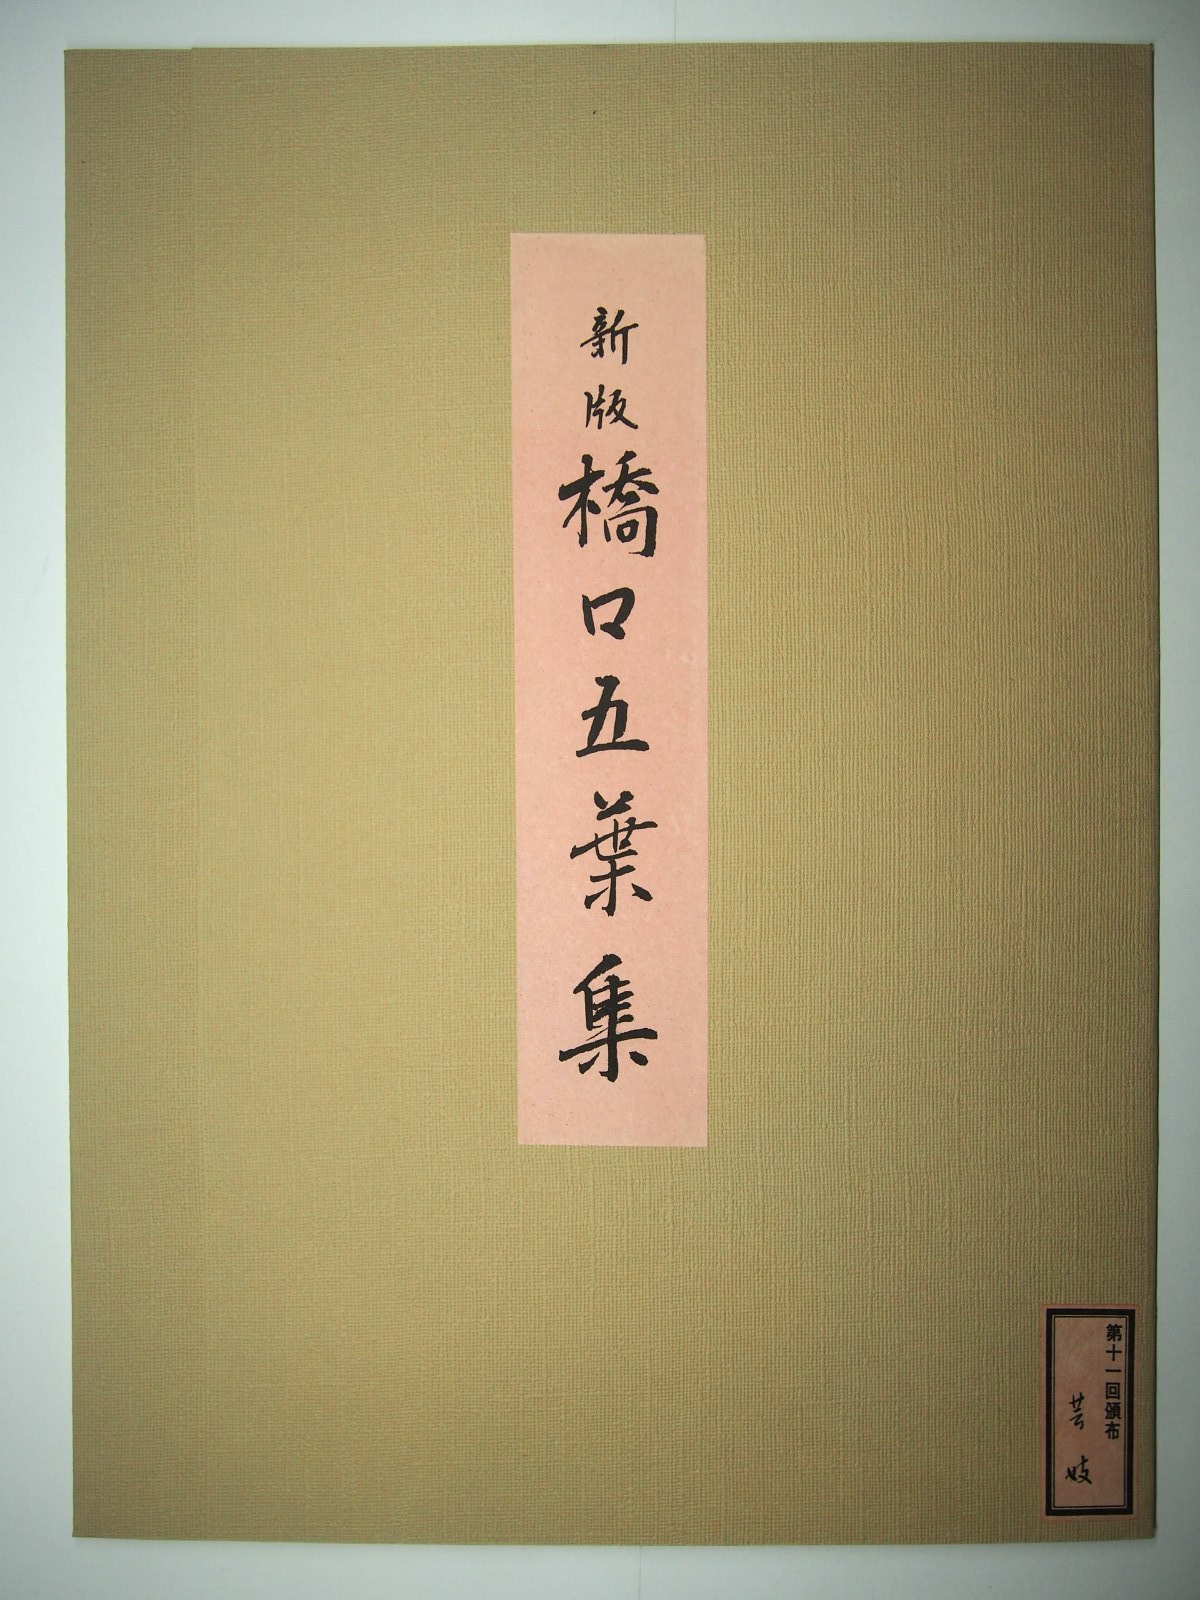 新版橋口五葉集
第十一回頒布
芸妓